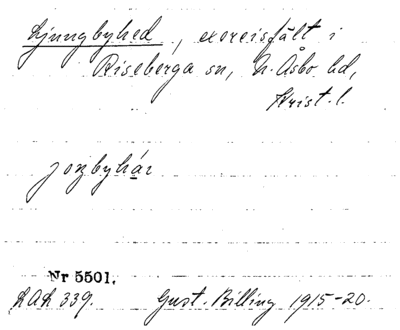 Ljungbyhed, exercisfält i
Riseberga sn, N. Åsbo hd,
Krist. l.
joŋbyhár
Nr 5501.
LAL 339. Gust. Billing 1915-20.